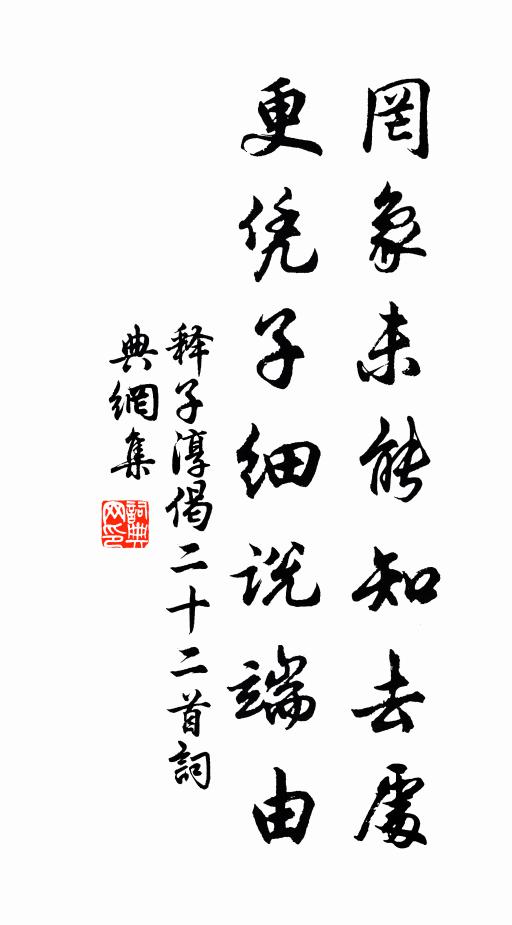 罔象未能知去處
更凭子细说端由
释子淳偈二十二首詞
典網集
詞典
网印